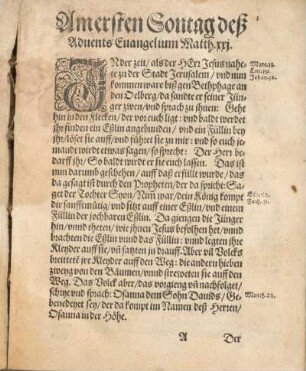 Am ersten Sontag deß
Advents Euangelium Matth. xxj.
IN der zeit / als der HErr Jesus nahe-
te zu der Stadt Jerusalem / vnd nun
kommen ware biß gen Bethphage an
den Oelberg / da sandte er seiner Jün-
ger zwen / vnd sprach zu jhnen: Geht
hin in den Flecken / der vor euch ligt: vnd baldt werdet
jhr finden ein Eßlin angebunden / vnd ein Füllin bey
jhr / löset sie auff / vnd führet sie zu mir: vnd so euch je-
mandt wirdt etwas sagen / so sprecht: Der Herr be-
darff jhr / So baldt wirdt er sie euch lassen. Das ist
nun darumb geschehen / auff daß erfüllt wurde / das
da gesagt ist durch den Propheten / der da spricht: Sa-
get der Tochter Syon / Nim war / dein König kompt
dir sanfftmütig / vnd sitzt auff einer Eßlin / vnd einem
Füllin der jochbaren Eßlin. Da giengen die Jünger
hin / vnnd theten / wie jhnen Jesus befolhen het / vnnd
brachten die Eßlin vnnd das Füllin: vnnd legten jhre
Kleyder auff sie / vñ satzten jn drauff. Aber vil Volcks
breittete jre Kleyder auff den Weg: die andern hieben
zweyg von den Bäumen / vnnd streweten sie auff den
Weg. Das Volck aber / das vorgieng vñ nachfolget /
schrye vnd sprach: Osanna dem Sohn Dauids / Ge-
benedeyet sey / der da kompt im Namen deß Herren /
Osanna in der Höhe.
A Der
Marc. 11.
Luc. 19.
Johan. 12.
Zach. 9.